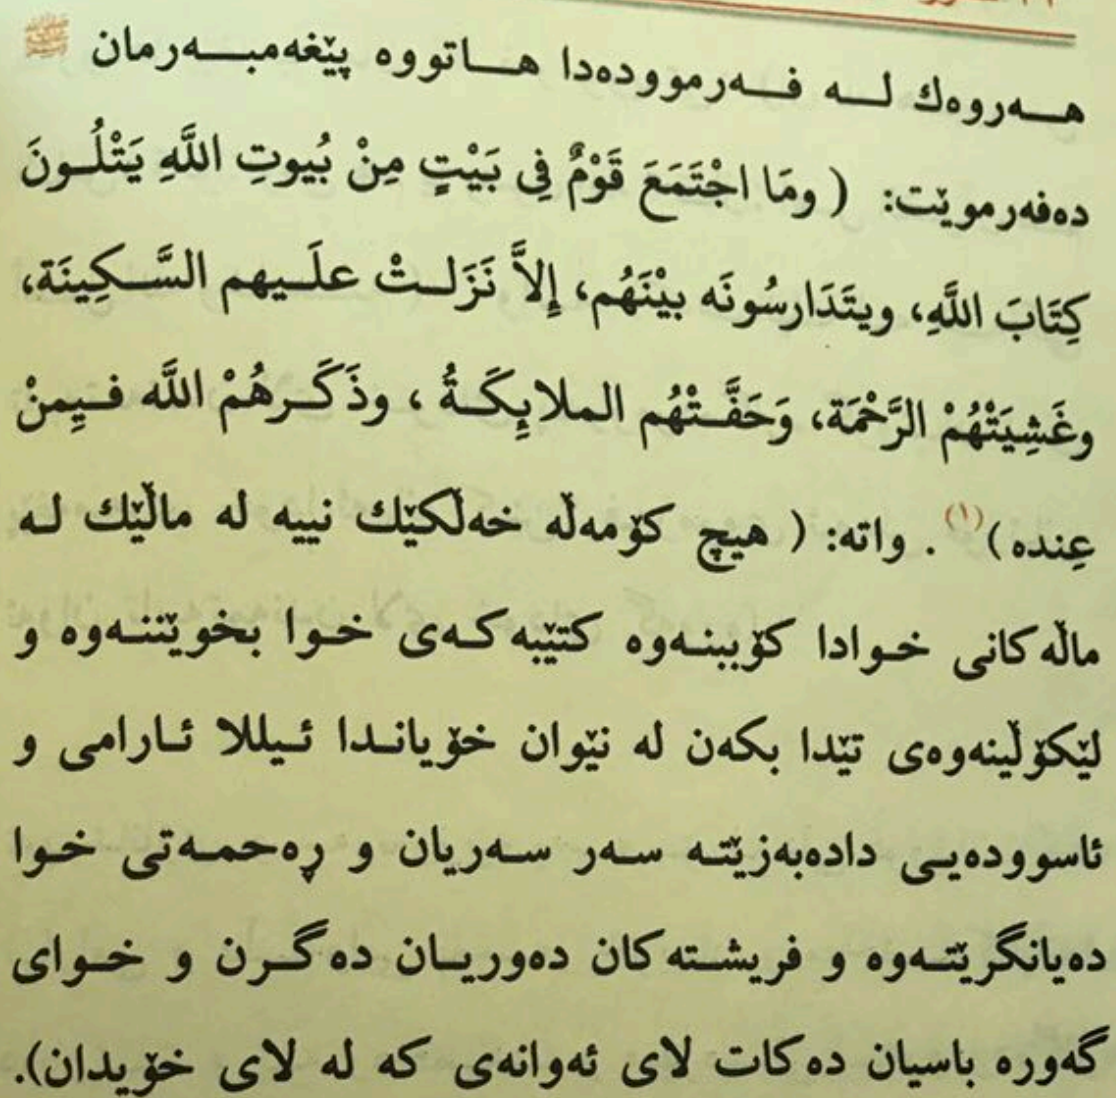 هەروەك لە فەرموودەدا هاتووە پێغەمبەرمان ﷺ
دەفەرموێت: ( ومَا اجْتَمَعَ قَوْمٌ فِي بَيْتٍ مِنْ بُيوتِ اللَّهِ يَتْلُونَ
كِتَابَ اللَّهِ، ويتَدَارسُونَه بيْنَهُم، إِلاَّ نَزَلتْ علَيهم السَّكِينَة،
وغَشِيَتْهُمْ الرَّحْمَة، وَحَفَّتْهُم الملايِكَةُ ، وذَكَرهُمْ اللَّه فيِمنْ
عِنده)(١) . واته: ( هیچ کۆمەڵە خەڵکێك نییە لە ماڵێك لە
ماڵەکانی خوادا کۆببنەوە کتێبەکەی خوا بخوێننەوە و
لێکۆڵینەوەی تێدا بکەن لە نێوان خۆیاندا ئیللا ئارامی و
ئاسوودەیی دادەبەزێتە سەر سەریان و ڕەحمەتی خوا
دەیانگرێتەوە و فریشتەکان دەوریان دەگرن و خوای
گەورە باسیان دەکات لای ئەوانەی کە لە لای خۆیدان).